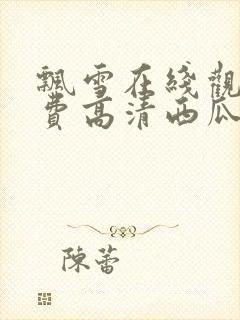 飄雪在綫觀
費高清西瓜
陳蕾